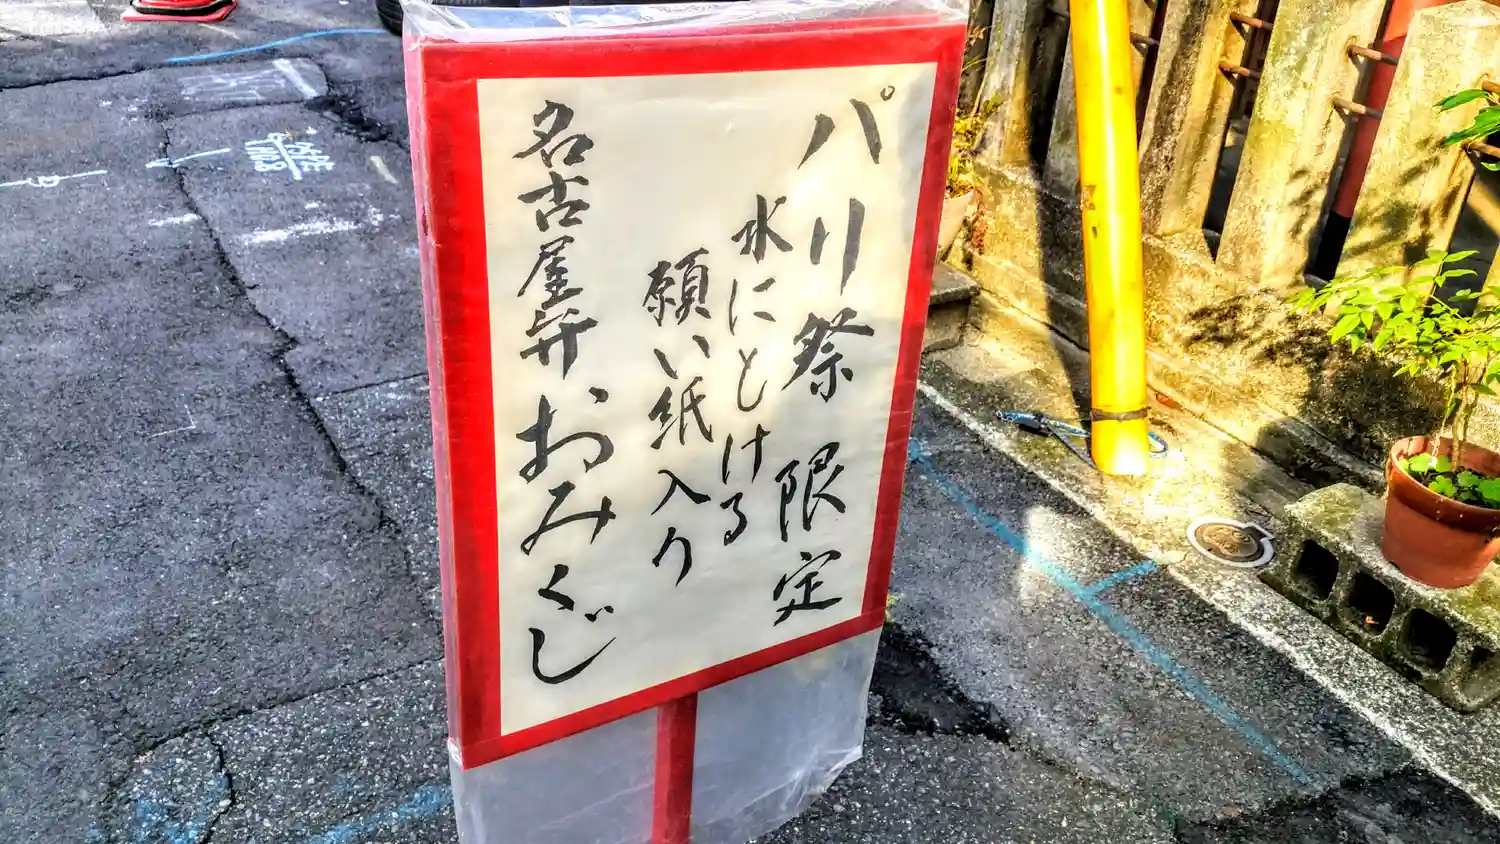 パリ祭 限定
水にとける
願い紙入り
名古屋弁おみくじ